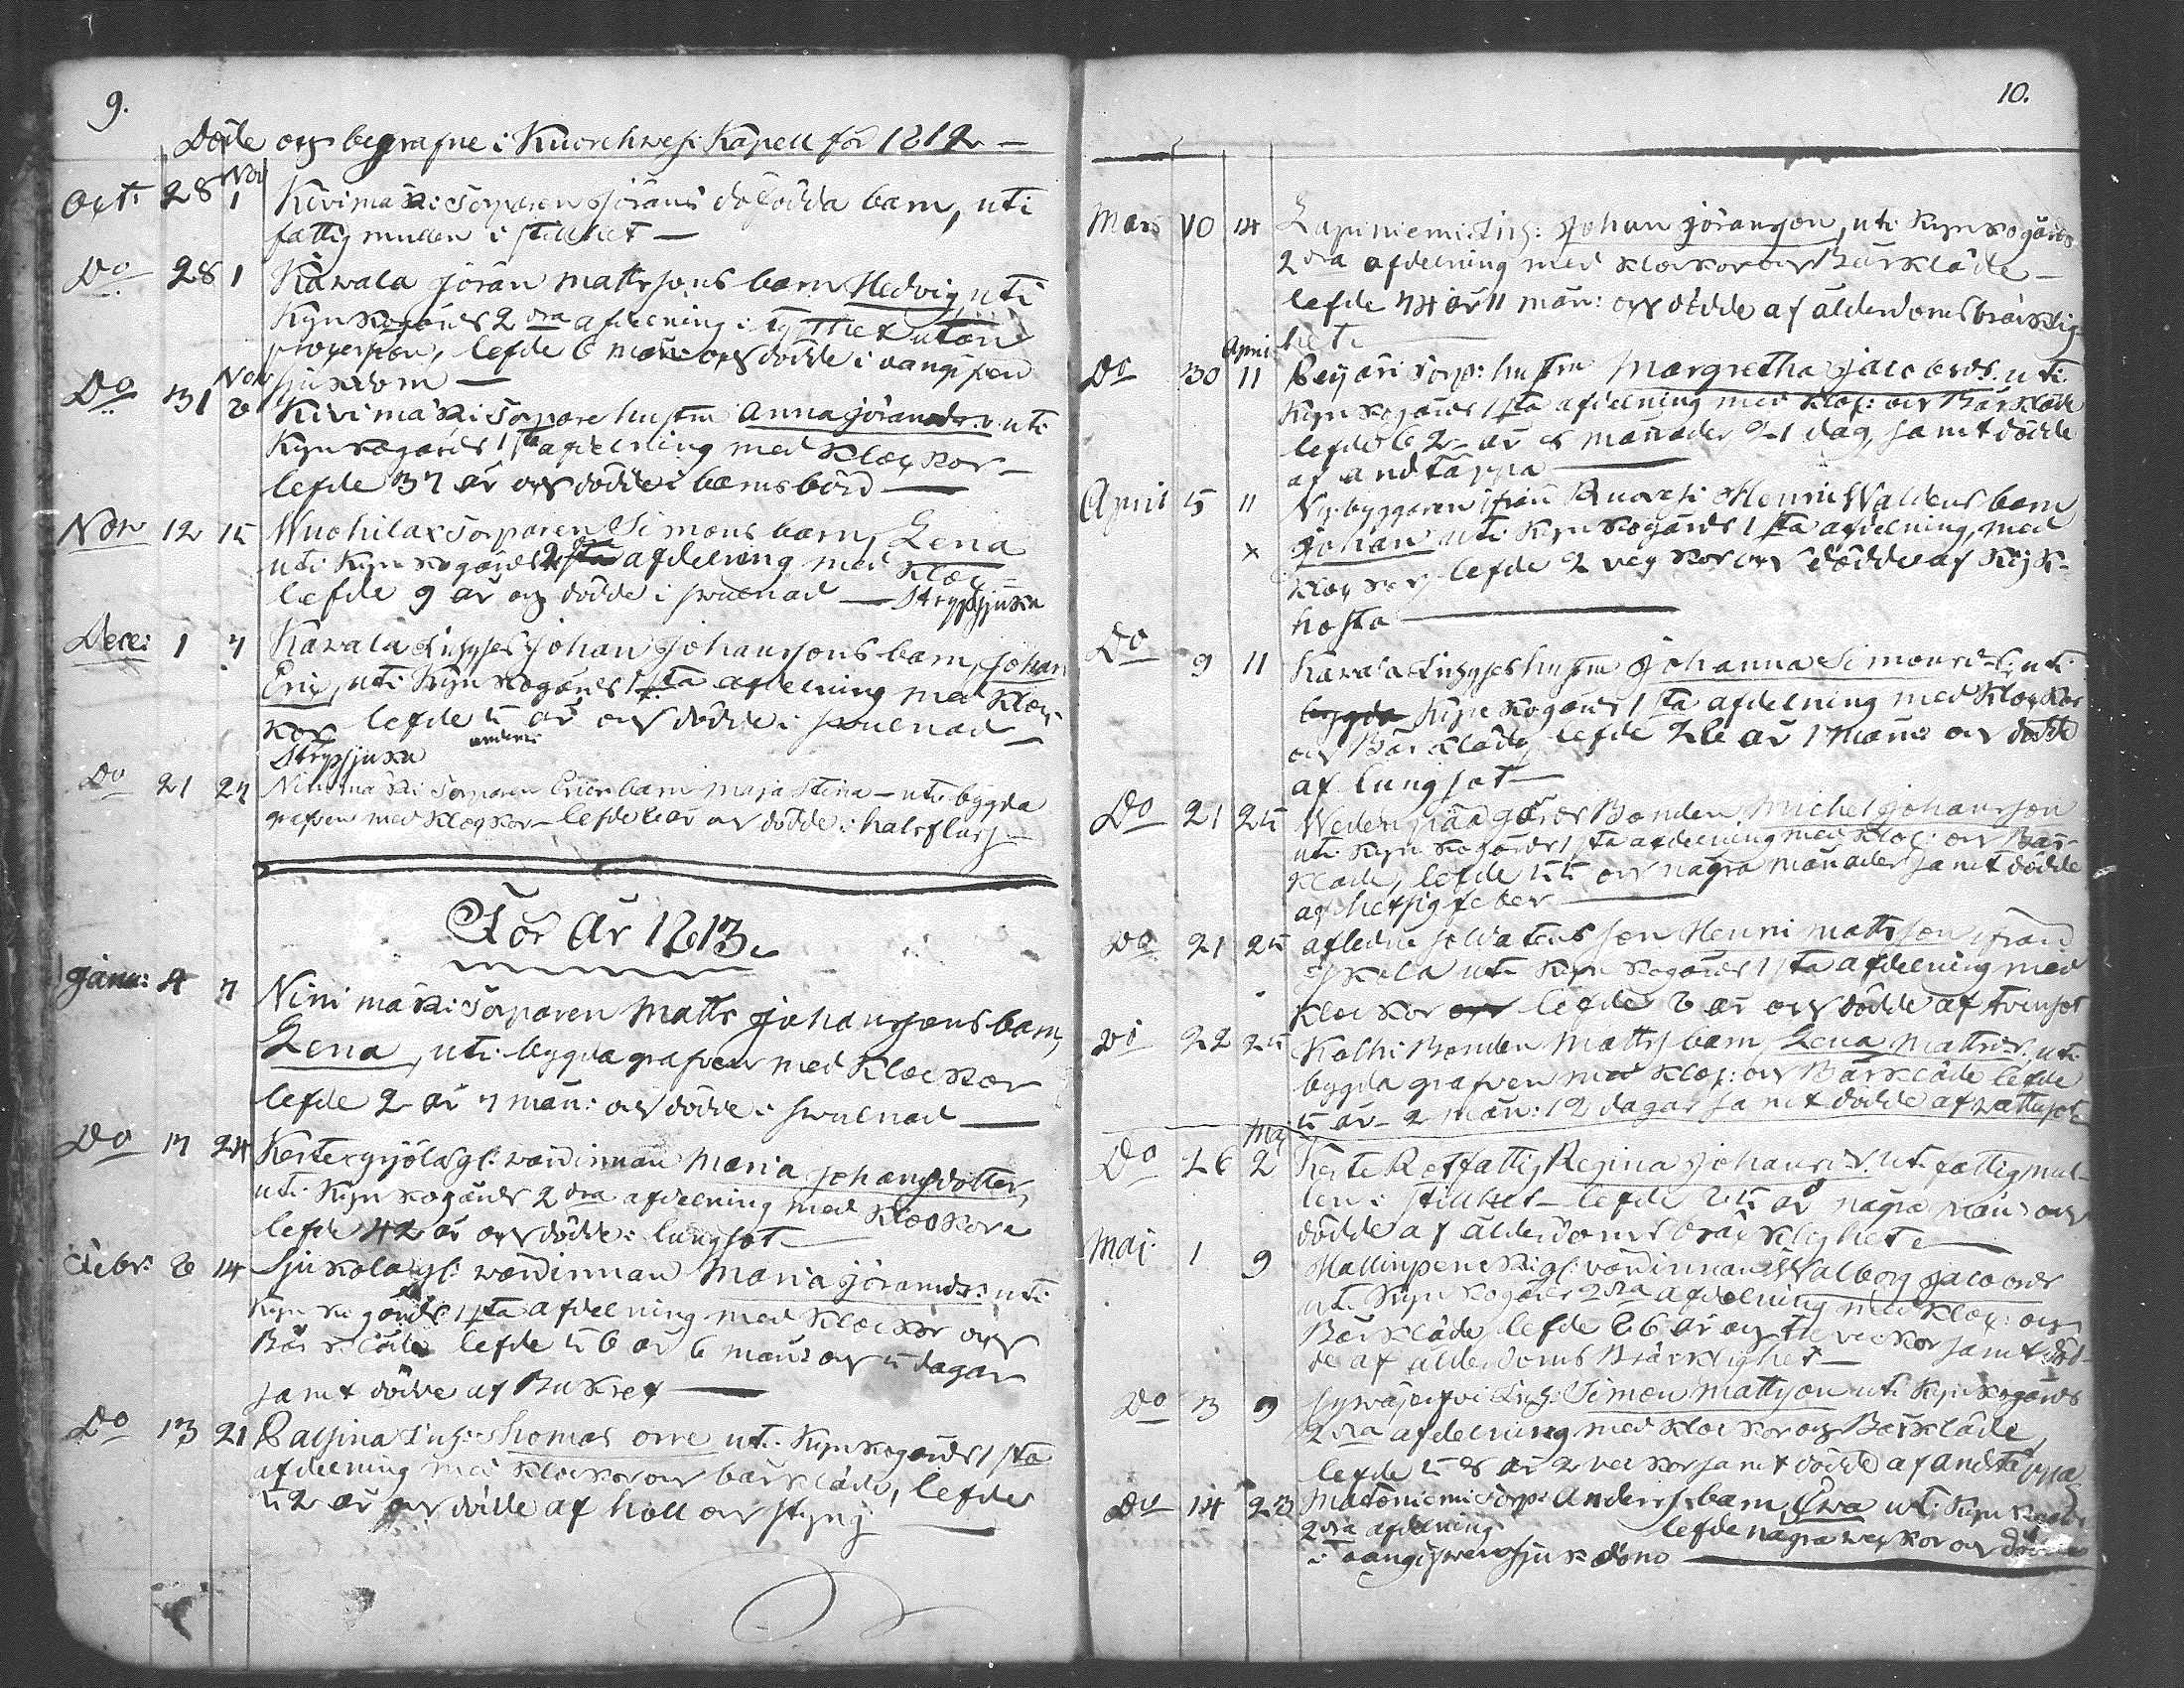 9.
Döde och begrafne i Kuorehwesi Kapell för 1812 —
Octr 28 Nov 1 Kivimäki Torparens Jörans döfödda barn, uti
fattigmullen i stillhet —
Do 28 1 Kawala Jöran Mattssons barn Hedvig, uti
Kyrkogårds 2dra afdelning i tysthet utan
procession, lefde 6 mån: och dödde i oangifven
sjukdom —
Do 31 Nov 8 Kivimäki Torpare hustru Anna Jöransdr uti
Kyrkogårds 1sta afdelning med Klockor —
lefde 37 år och dödde i barnsbörd —
Nov 12 15 Wuohilax Torparen Simons barn, Lena
uti Kyrkogårds afdelning med Kloc
lefde 9 år och dödde i swulnad — Strypsjuka
Dece: 1 7 Kawala Johan Johanssons barn, Johan
Eric, uti Kyrkogårds 1sta afdelning med Kloc
kor lefde 5 år och dödde i swulnad —
Strypsjuka
Do 21 27 Ninimäki Torparen Erics barn Maja Stina — uti bygda
grafven med Klockor — lefde år och dödde i halsfluss —
För År 1813.
Janu: 4 7 Ninimäki Torparen Matts Johanssons barn,
Lena, uti bygda grafven med Klockor
lefde 2 år 7 mån: och dödde i swulnad —
Do 17 24 gl: wärdinnan Maria Johansdotter,
uti Kyrkogårds 2dra afdelning med Klockor
lefde 42 år och dödde i lungsot —
Febr: 8 14 Sjukola gl: wärdinnan Maria Jöransdr: uti
Kyrkogårds 1sta afdelning med Klockor och
Bårkläde lefde 56 år 6 mån: och 5 dagar
samt dödde af Bukref —
Do 13 21 Thomas Orre uti Kyrkogårds 1sta
afdelning med Klockor och bårkläde, lefde
52 år och dödde af håll och styng —
10.
Mars 10 14 Lapiniemi Johan Jöransson, uti Kyrkogårds
2dra afdelning med Klockor och Bårkläde —
lefde 74 år 11 mån: och dödde af ålderdoms bräcklig
het.
Do 30 April 11 hustru Margretha Jacobsdr. uti
Kyrkogårds 1sta afdelning med Kloc: och Bårkläde
lefde 62 år 8 månader 21 dag, samt dödde
af andtäppa —
April 5 11 Nybyggaren ifrån Ruovesi Henric Waldens barn
x Johan uti Kyrkogårds 1sta afdelning, med
Klockor, lefde 2 veckor och dödde af Kik-
hosta —
Do 9 11 Kawala hustru Johanna Simonsdr. uti
bygda Kyrkogårds 1sta afdelning med Klockor
och Bårkläde, lefde år 1 mån: och dödde
af lungsot —
Do 21 25 gårds Bonden Michel Johansson
uti Kyrkogårds 1sta afdelning med Kloc: och Bår-
kläde, lefde 55 och några månader samt dödde
af hetsig feber —
Do 21 25 afledne soldatens son Henric Mattsson ifrån
uti Kyrkogårds 1sta afdelning med
Klockor och lefde 8 år och dödde af tvinsot
Do 22 25 Kolhi Bonden Matts barn Lena Mattsdr. uti
bygda grafven med Kloc: och Bårkläde lefde
5 år 2 mån: 12 dagar samt dödde af wattusot
Do 26 Maj 2 Rotfattig Regina Johansdr. uti fattigmul-
len i stillhet — lefde 85 år några mån: och
dödde af ålderdoms bräcklighet —
Maj 1 9 gl: värdinnan Walborg Jacobsdr
uti Kyrkogårds 2dra afdelning med Kloc: och
Bårkläde lefde 86 år och tre veckor samt död-
de af ålderdoms Bräcklighet —
Do 3 9 Simon Mattsson uti Kyrkogårds
2dra afdelning med Klockor och Bårkläde,
lefde 58 år 2 veckor samt dödde af andtäppa
Do 14 23 Matoniemi Torp: Anders barn, Ewa uti Kyrkogårds
2dra afdelning lefde några veckor och dödde
i oangifwen sjukdom —